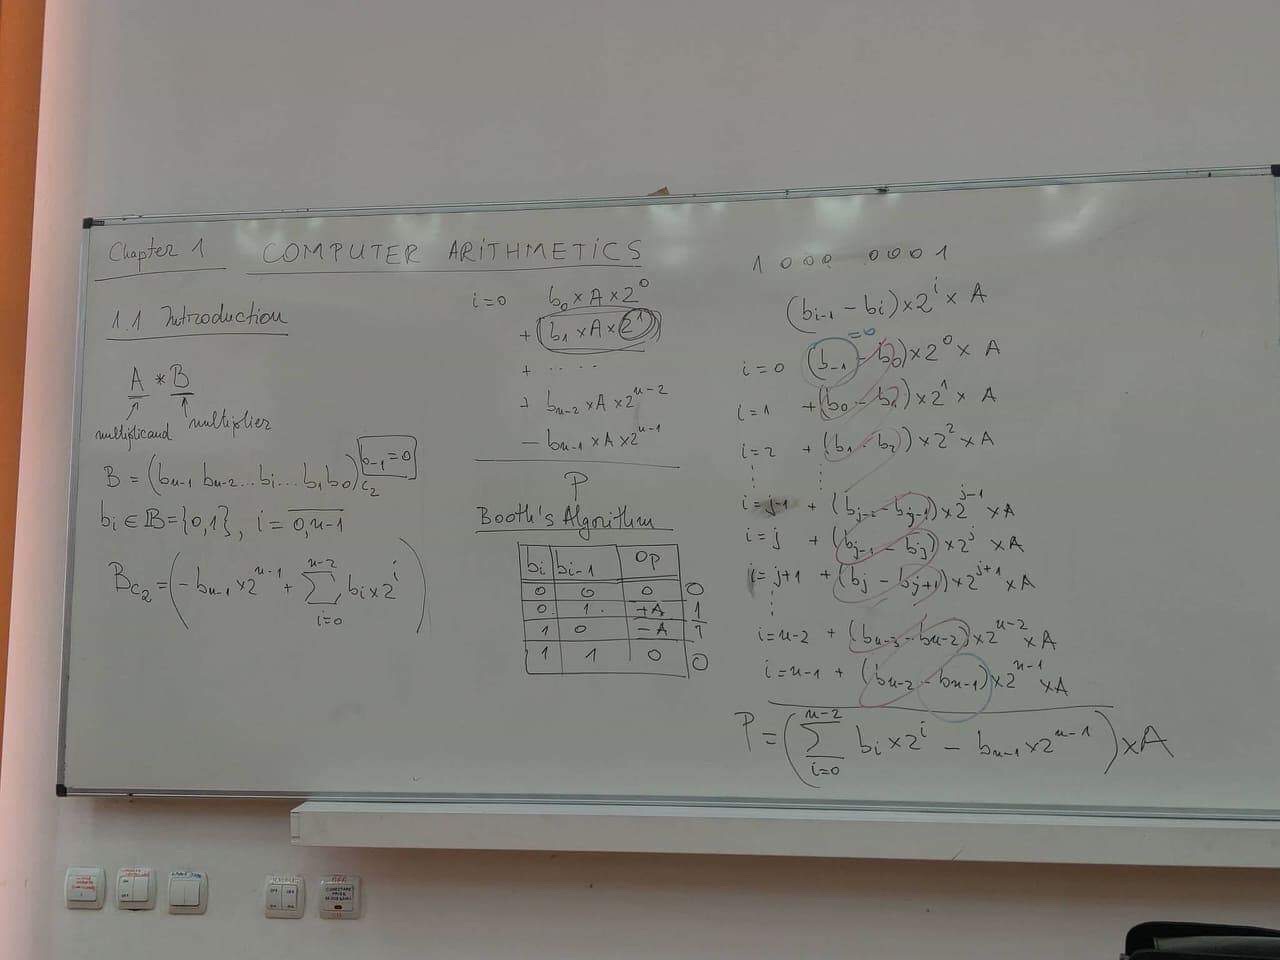 Chapter 1 COMPUTER ARITHMETICS
1.1 Introduction
A * B
multiplicand multiplier
B = (bn-1 bn-2 ... bi ... b1 b0)C2 b-1 = 0
bi ∈ B = {0,1}, i = 0,n-1
BC2 = (-bn-1 × 2^n-1 + Σ i=0 n-2 bi × 2^i)
i=0 b0 × A × 2^0
+ (b1 × A × 2^1)
+ ....
+ bn-2 × A × 2^n-2
- bn-1 × A × 2^n-1
P
Booth's Algorithm
bi bi-1 OP
0 0 0 0
0 1 +A 1
1 0 -A 1
1 1 0 0
1 0 0 0 0 0 0 1
(bi-1 - bi) × 2^i × A
=0
i=0 (b-1 - b0) × 2^0 × A
i=1 + (b0 - b1) × 2^1 × A
i=2 + (b1 - b2) × 2^2 × A
i=j-1 + (bj-2 - bj-1) × 2^j-1 × A
i=j + (bj-1 - bj) × 2^j × A
i=j+1 + (bj - bj+1) × 2^j+1 × A
i=n-2 + (bn-3 - bn-2) × 2^n-2 × A
i=n-1 + (bn-2 - bn-1) × 2^n-1 × A
P = (Σ i=0 n-2 bi × 2^i - bn-1 × 2^n-1) × A